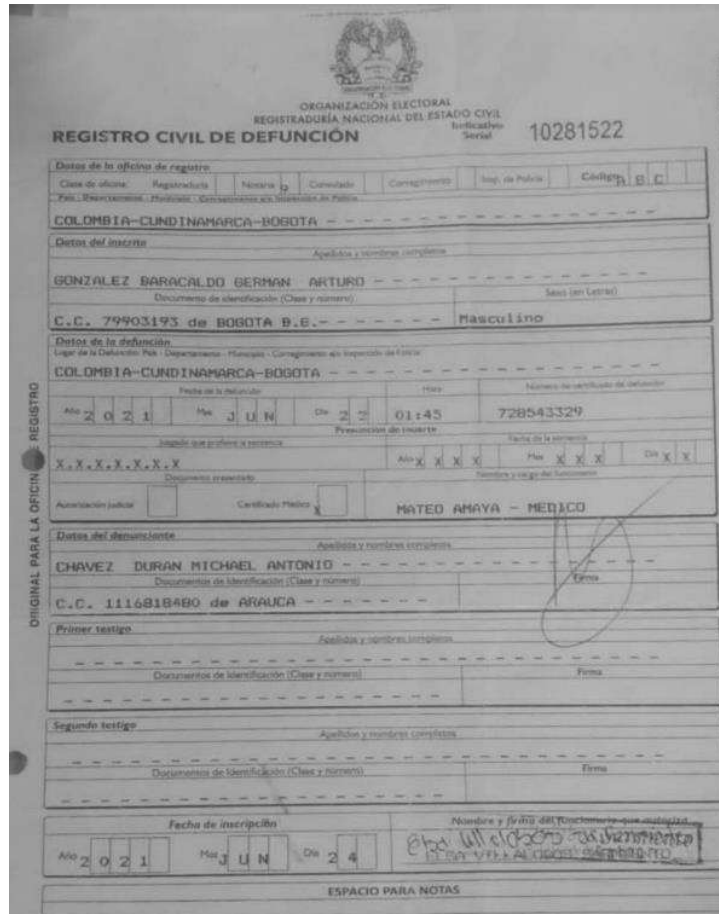 ORGANIZACIÓN ELECTORAL
REGISTRADURÍA NACIONAL DEL ESTADO CIVIL
REGISTRO CIVIL DE DEFUNCIÓN
Indicativo Serial 10281522
Datos de la oficina de registro
Clase de oficina: Registraduría Notaría Consulado Corregimiento Insp. de Policía Código A B C
País - Departamento - Municipio - Corregimiento e/o Inspección de Policía
COLOMBIA-CUNDINAMARCA-BOGOTA - - - - - - - - - - - - - - - - -
Datos del inscrito
Apellidos y nombres completos
GONZALEZ BARACALDO GERMAN ARTURO - - - - - - - - - - - - - -
Documento de identificación (Clase y número) Sexo (en Letras)
C.C. 79903193 de BOGOTA B.E.- - - - - - Masculino
Datos de la defunción
Lugar de la Defunción: País - Departamento - Municipio - Corregimiento e/o Inspección de Policía
COLOMBIA-CUNDINAMARCA-BOGOTA - - - - - - - - - - - - - - - - -
Fecha de la defunción Hora Número de certificado de defunción
Año 2 0 2 1 Mes J U N Día 2 2 01:45 728543329
Presunción de muerte
Juzgado que profiere la sentencia Fecha de la sentencia
X.X.X.X.X.X.X Año X X X X Mes X X X Día X X
Documento presentado Nombre y cargo del funcionario
Autorización judicial Certificado Médico X MATEO AMAYA - MEDICO
Datos del denunciante
Apellidos y nombres completos
CHAVEZ DURAN MICHAEL ANTONIO - - - - - - - - - - - - - - - -
Documentos de Identificación (Clase y número) Firma
C.C. 1116818480 de ARAUCA - - - - - - -
Primer testigo
Apellidos y nombres completos
Documentos de Identificación (Clase y número) Firma
Segundo testigo
Apellidos y nombres completos
Documentos de Identificación (Clase y número) Firma
Fecha de inscripción Nombre y firma del funcionario que autoriza
Año 2 0 2 1 Mes J U N Día 2 4
ESPACIO PARA NOTAS
ORIGINAL PARA LA OFICINA DE REGISTRO